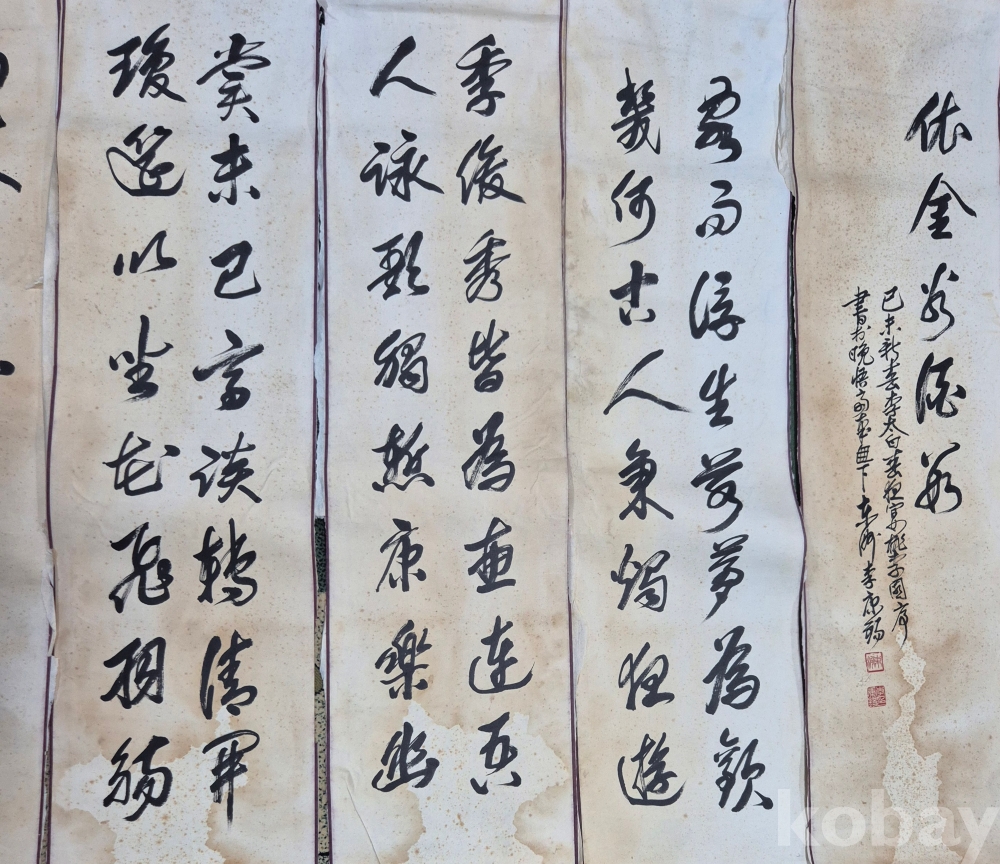 依金谷酒數
己未新春李太白春夜宴桃李園序
書於晩悟
客而浮生若夢為歡
幾何古人秉燭夜遊
季俊秀皆為惠連吾
人詠歌獨慚康樂幽
賞未已高談轉清開
瓊筵以坐花飛羽觴
kobay